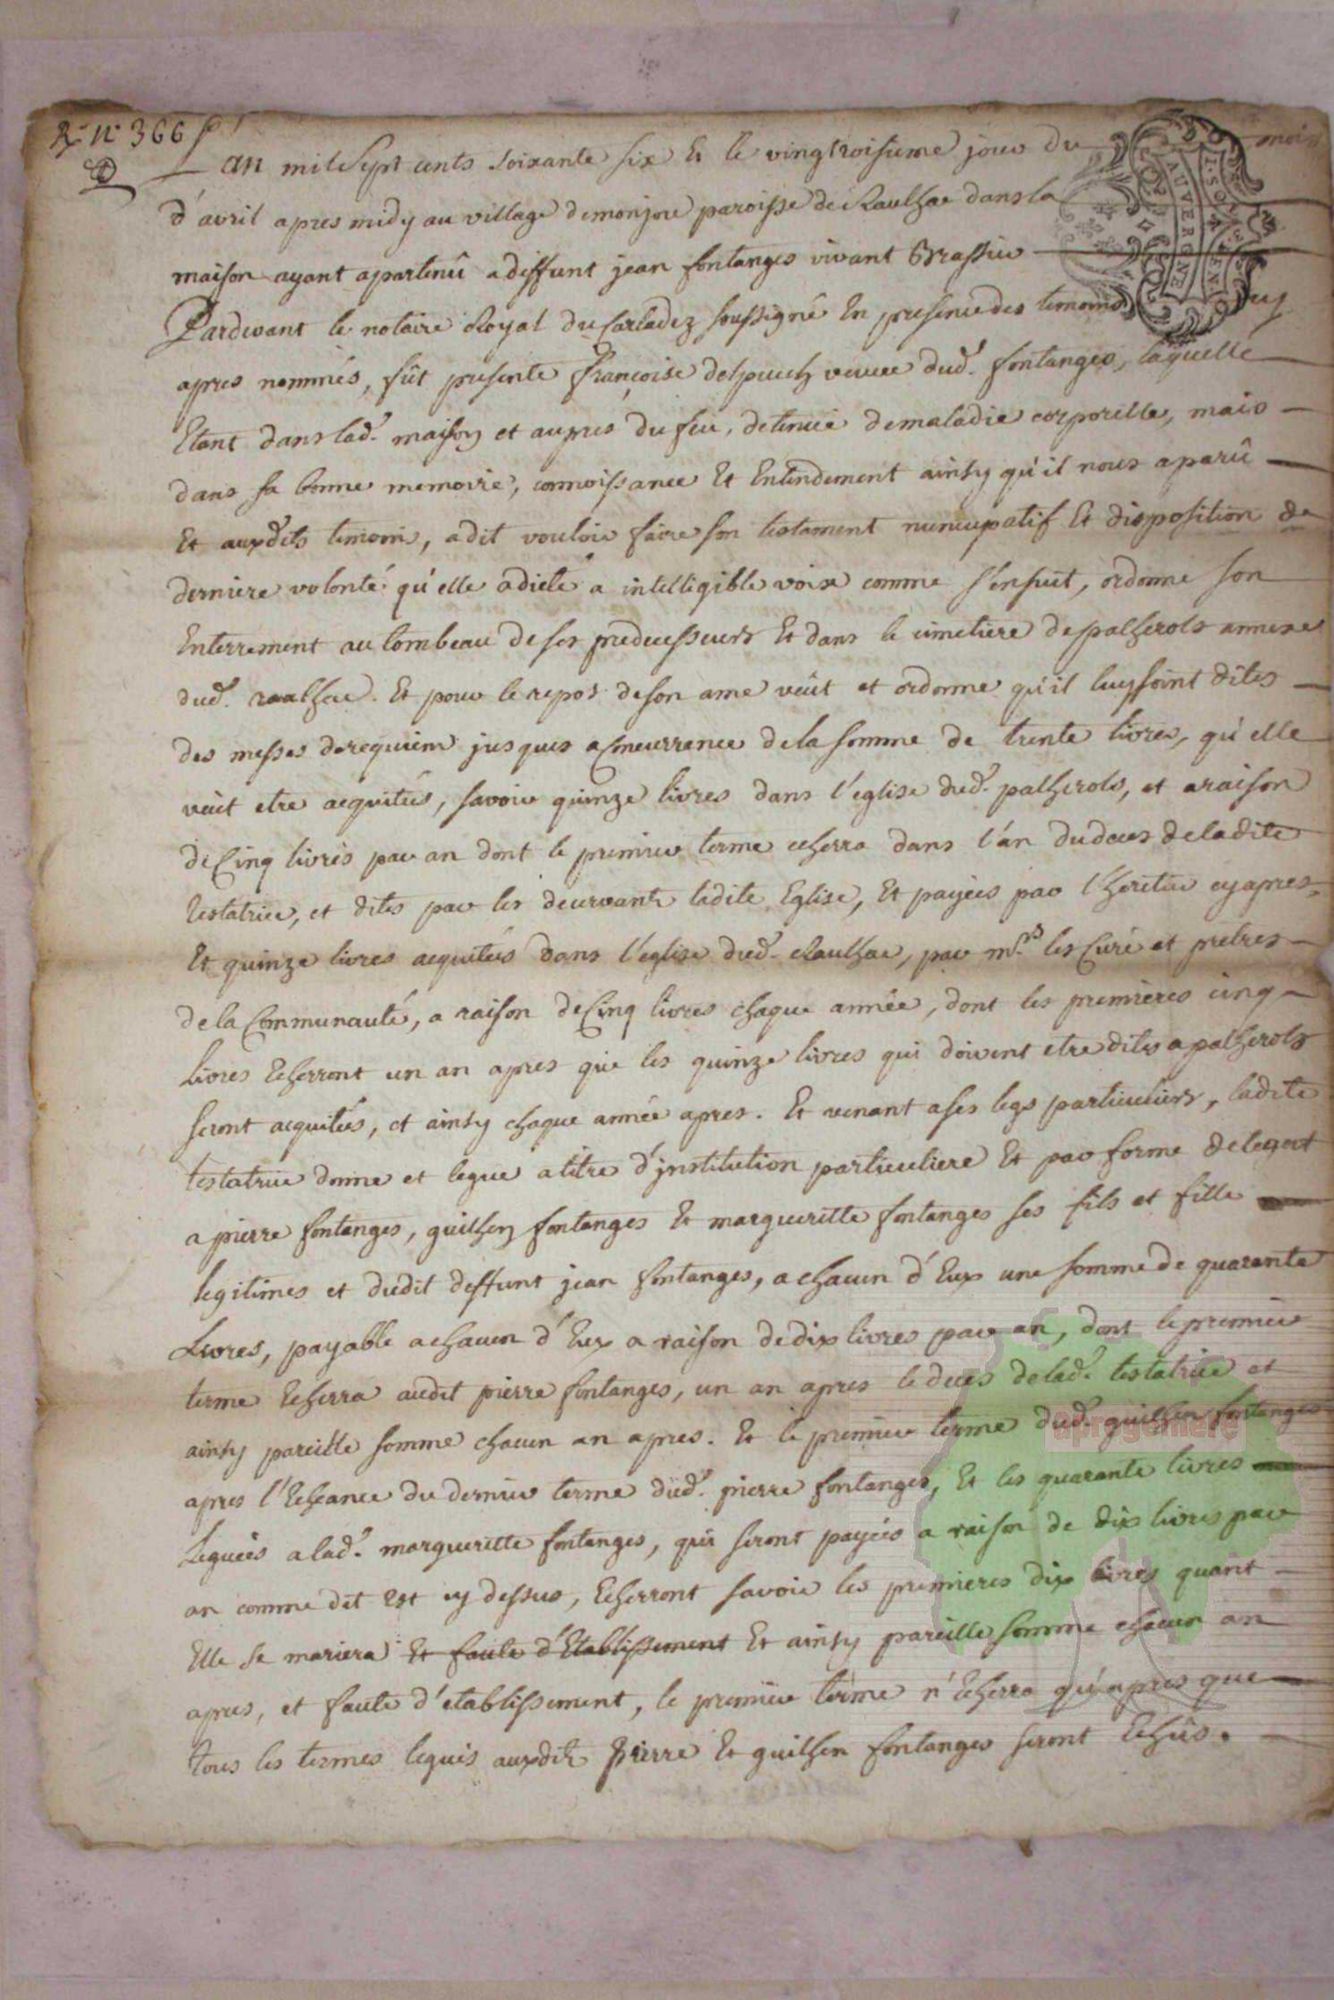 R. n. 366
L'an mil Sept cents soixante six Et le vingtroisieme jour du mois
d'avril apres midy au village de monjou paroisse de Raulhac dans la
maison ayant apartenû a deffunt jean fontanges vivant Brassier
Pardevant le notaire Royal du Carladez soussigné En presence des temoins cy
apres nommés, fût presente françoise delpuech veuve dud. fontanges, laquelle
Etant dans lad. maison et aupres du feu, detenue de maladie corporelle, mais
dans sa bonne memoire, connoissance Et Entendement ainsy qu'il nous a parû
Et auxdits temoins, a dit vouloir faire son testament nuncupatif Et disposition de
derniere volonté qu'elle a dicté a intelligible voix comme s'ensuit, ordonne son
Enterrement au tombeau de ses predecesseurs Et dans le cimetiere de palherols annexe
dud. raulhac. Et pour le repos de son ame veut et ordonne qu'il luy soint dites
des messes de requiem jusques a Concurrence de la somme de trente livres, qu'elle
veut etre acquitées, savoir quinze livres dans l'eglise dud. palherols, et a raison
de Cinq livres par an dont le premier terme echerra dans l'an du deces de ladite
testatrice, et dites par les decervants ladite Eglise, Et payées par l'heritier cy apres
Et quinze livres acquitées dans l'eglise dud. Raulhac, par mrs. les Curé et pretres
de la Communauté, a raison de Cinq livres chaque année, dont les premieres cinq
livres Echerront un an apres que les quinze livres qui doivent etre dites a palherols
seront acquitées, et ainsy chaque année apres. Et venant a ses legs particuliers, ladite
testatrice donne et legue a titre d'jnstitution particuliere Et par forme de legat
a pierre fontanges, guilhen fontanges Et margueritte fontanges ses fils et fille
legitimes et dudit deffunt jean fontanges, a chacun d'Eux une somme de quarante
Livres, payable a chacun d'Eux a raison de dix livres par an, dont le premier
terme Echerra audit pierre fontanges, un an apres le deces de lad. testatrice et
ainsy pareille somme chacun an apres. Et le premier terme dud. guilhen fontanges
apres l'Echeance du dernier terme dud. pierre fontanges, Et les quarante livres
Leguées a lad. margueritte fontanges, qui seront payées a raison de dix livres par
an comme dit est cy dessus, Echerront savoir les premieres dix livres quant
Elle se mariera Et faute d'Etablissement Et ainsy pareille somme chacun an
apres, et faute d'etablissement, le premier terme n'Echerra qu'apres que
tous les termes legués auxdits pierre Et guilhen fontanges seront Echûs.
AUVERGNE
aprogemere